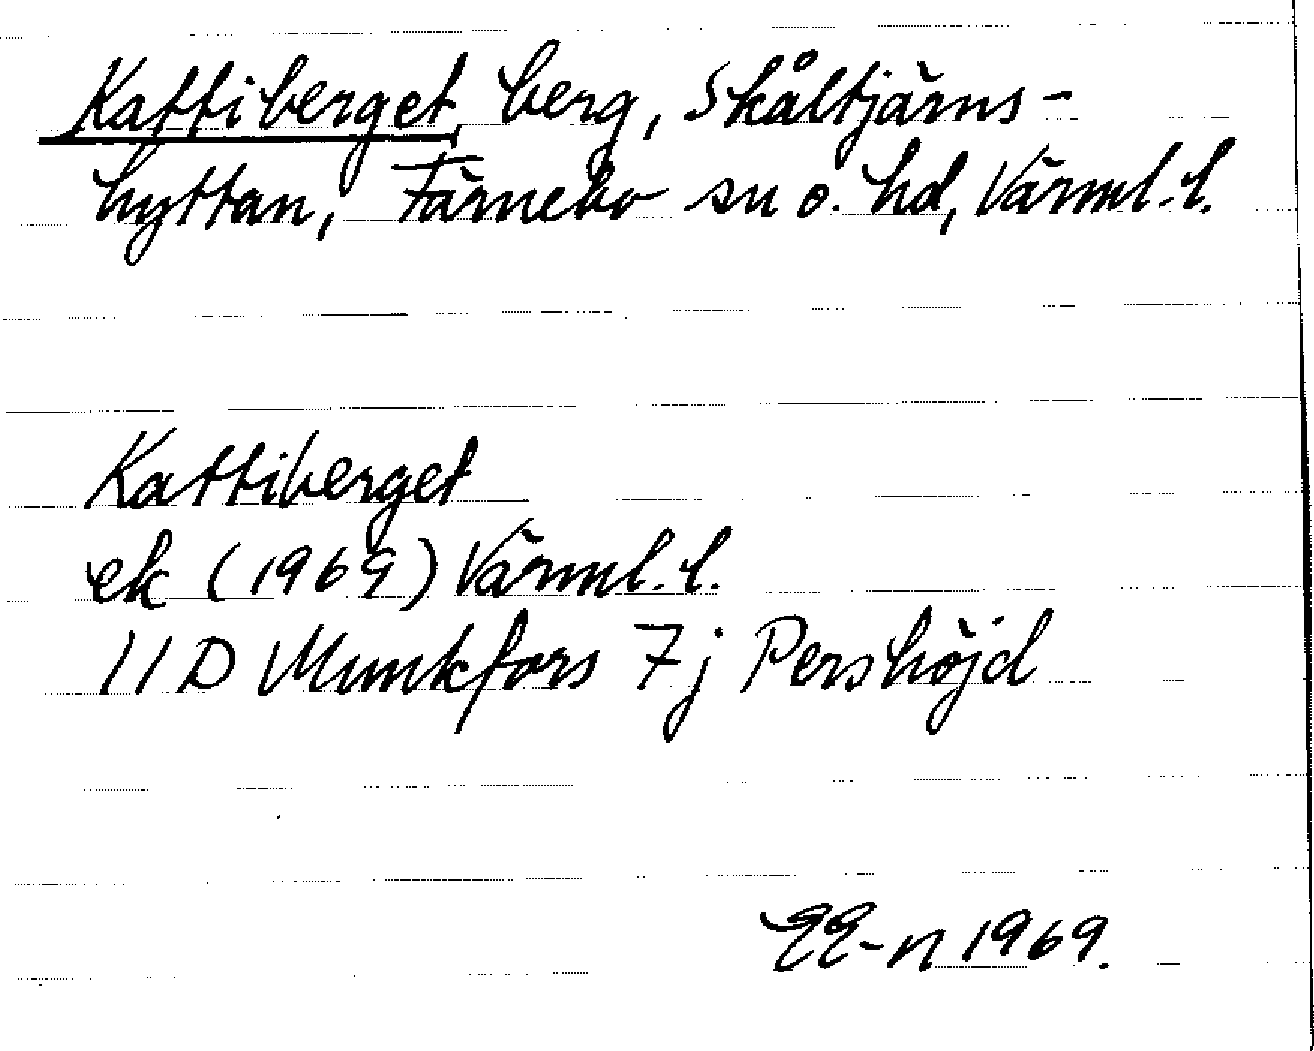 Kattiberget, berg, Skåltjärns-
hyttan, Färnebo sn o. hd, Värml. l.
Kattiberget
ek (1969) Värml. l.
11D Munkfors 7j Pershöjd
EE-n 1969.